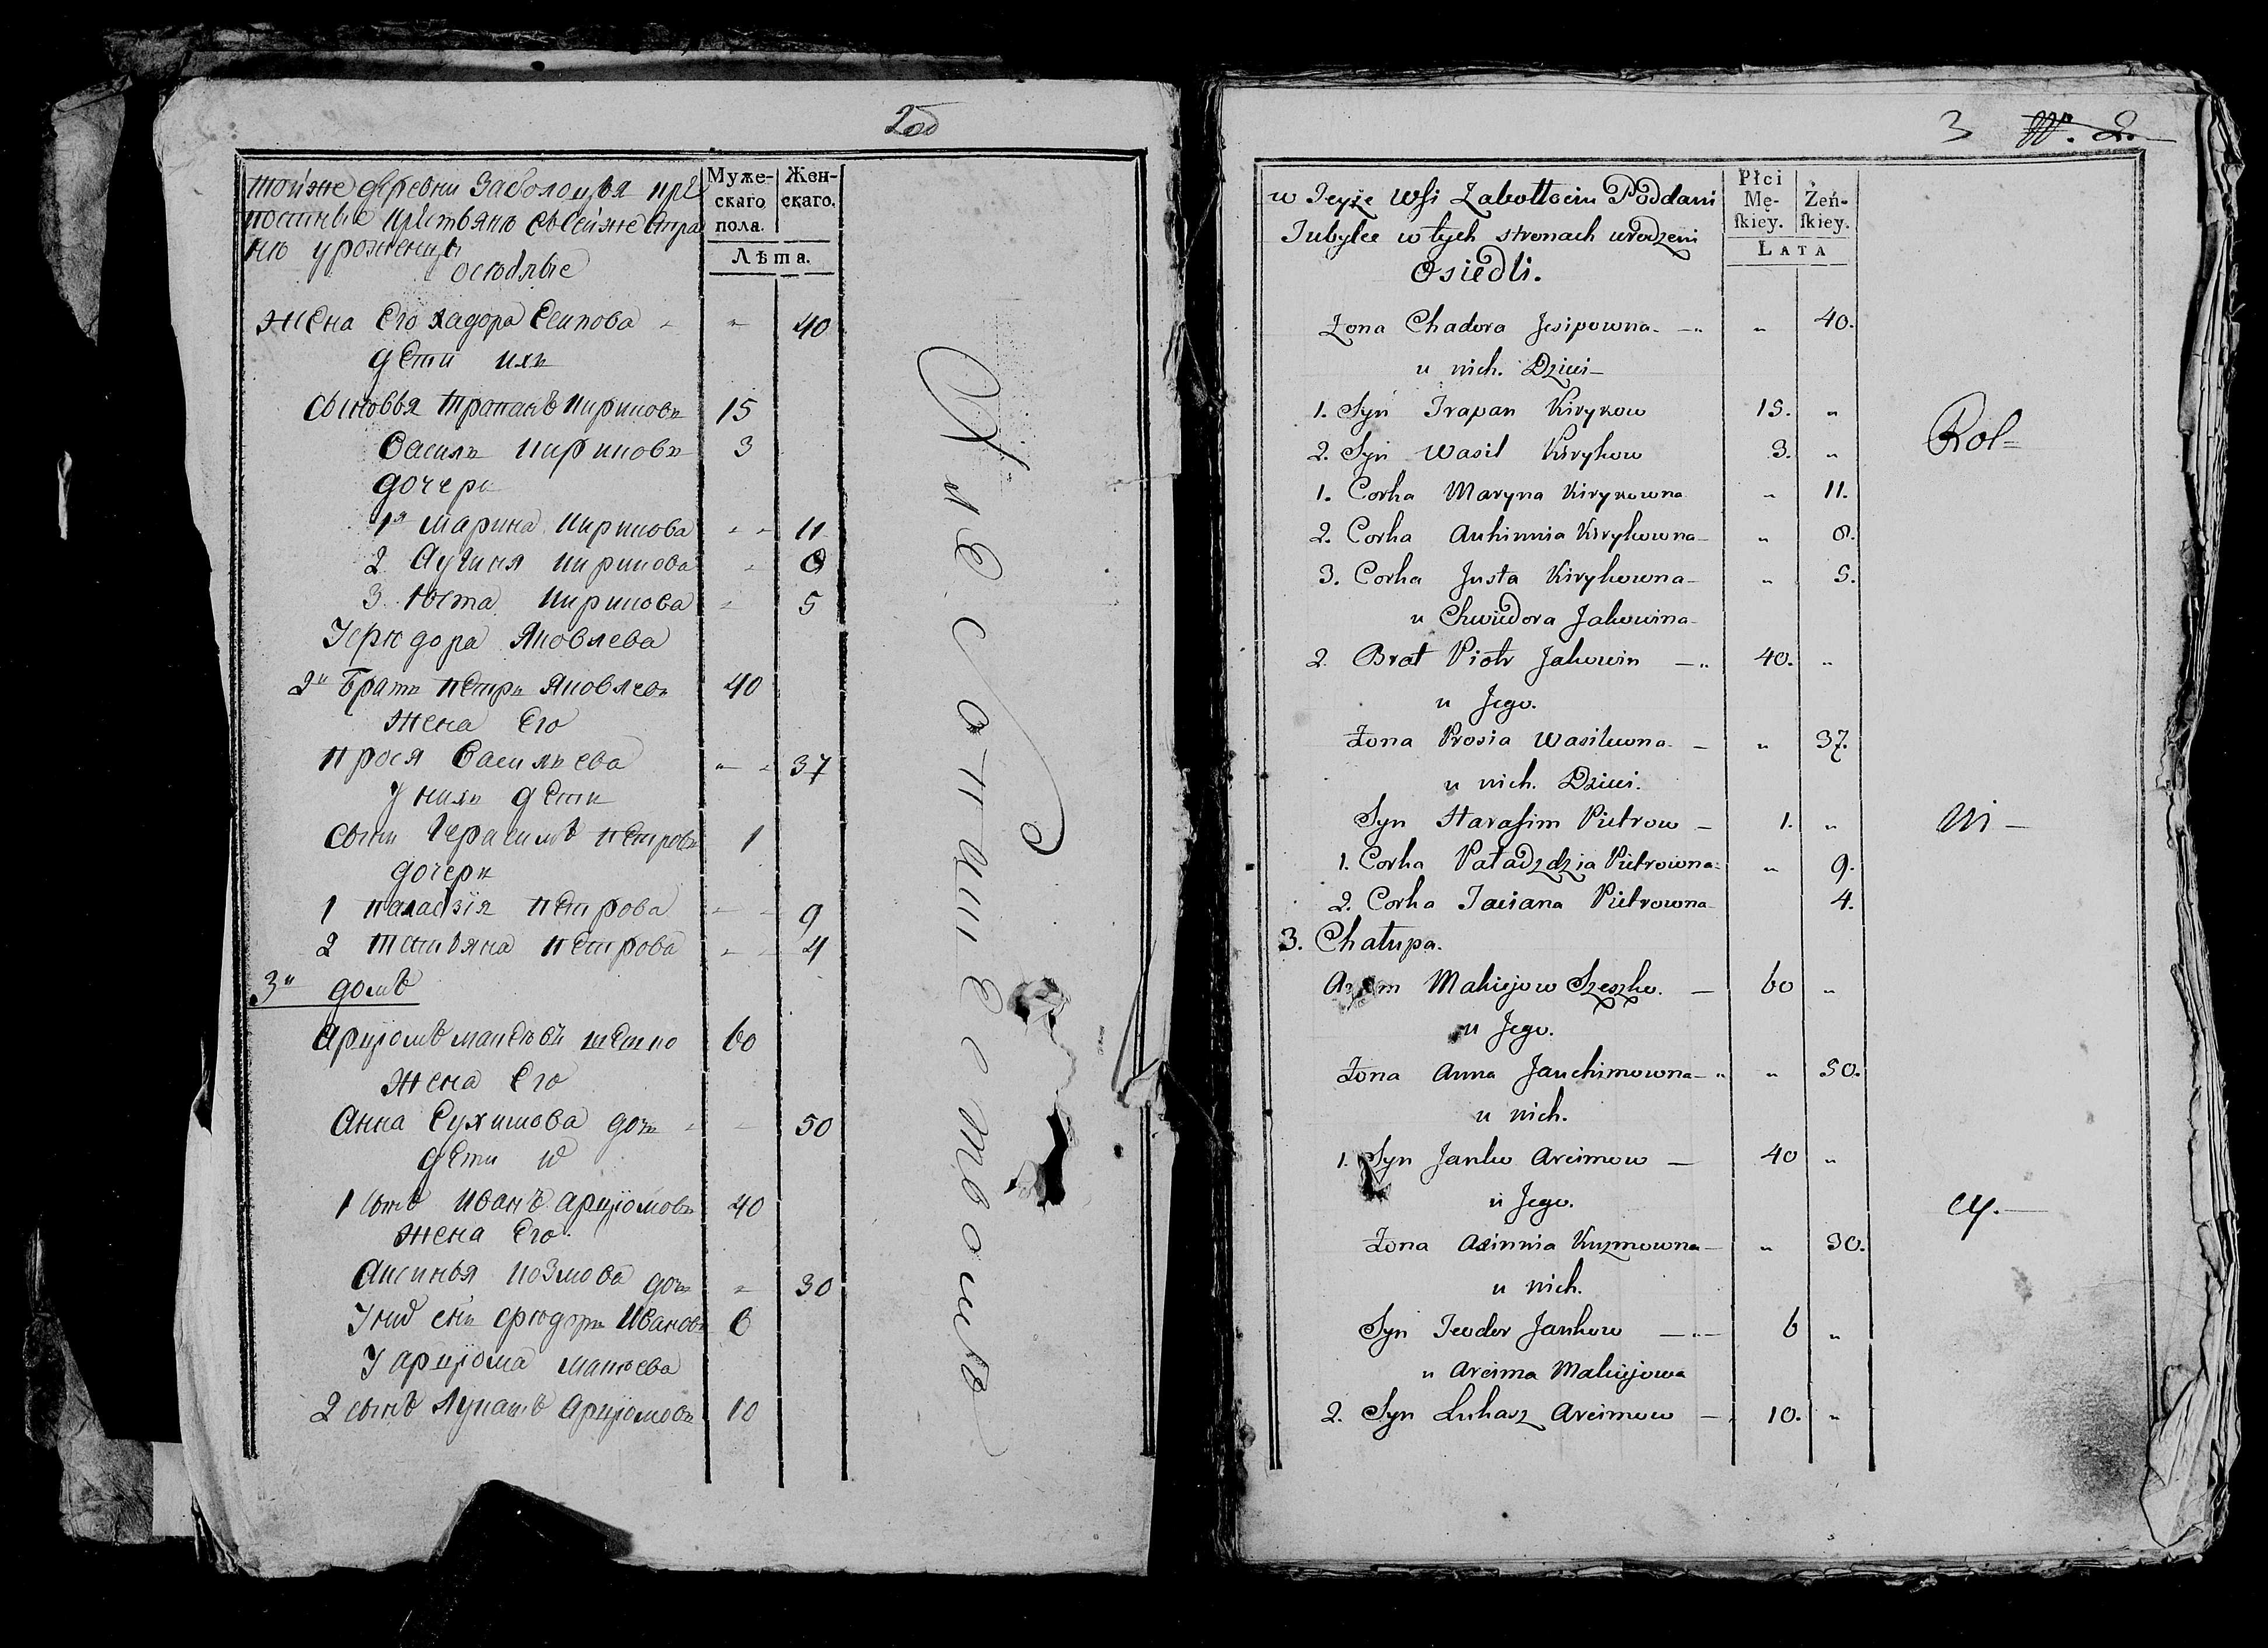 2об
тойже деревни Заболоцья кре
постные крестьяне в сейже стра
не уроженцы
оседлые
Муже-
скаго
пола.
Жен-
скаго.
Лѣта.
жена Его Хадора Есипова " 40
дети ихъ
Сыновья Трапанъ Кириковъ 15
Василь Кириковъ 3
дочери
1я Марина Кирикова " 11
2 Аугиня Кирикова " 8
3 Юста Кирикова " 5
У Ѳюдора Яковлева
2й Братъ петръ Яковлевъ 40
жена Его
прося Васильева " 37
у нихъ дети
Сынъ Герасимъ петровъ 1
дочери
1 паладзія петрова " 9
2 Татьяна петрова " 4
3й домъ
Арцюмъ макеевъ шешко 60
жена Его
Анна Еухимова дочь " 50
дети их
1 Сынъ Иванъ Арцюмовъ 40
жена Его
Аксинья козмова дочь " 30
У них сынъ Ѳюдоръ Ивановъ 6
У Арцюма макеева
2 сынъ Лукашъ Арцюмовъ 10
3 W. 2.
w Teyże Wsi Zabołłociu Poddani
Tubylce w tych stronach urodzeni
Osiedli.
Płci
Mę-
skiey.
Żeń-
skiey.
LATA
Zona Chadora Jesipowna — " " 40.
u nich. Dzieci —
1. Syn Trapan Kirykow 15. "
2. Syn Wasil Kirykow 3. "
1. Corka Maryna Kirykowna " 11.
2. Corka Auhinnia Kirykowna — " 8.
3. Corka Justa Kirykowna — " 5.
u Chwiedora Jakowina —
2. Brat Piotr Jakowin — " 40. "
u Jego.
Żona Prosia Wasilewna. — " 37.
u nich. Dzieci.
Syn Harasim Pietrow — 1. "
1. Corka Paładzdzia Pietrowna " 9.
2. Corka Taciana Pietrowna 4.
3. Chałupa.
Arcim Makiejow Szeszko. — 60 "
u Jego.
Żona Anna Jauchimowna — " " 50.
u nich.
1. Syn Janko Arcimow — 40 "
u Jego.
Żona Axinnia Kuzmowna — " 30.
u nich.
Syn Teodor Jankow — " — 6 "
u Arcima Makiejowa
2. Syn Łukasz Arcimow — 10. "
Rol=
ni —
cy. —